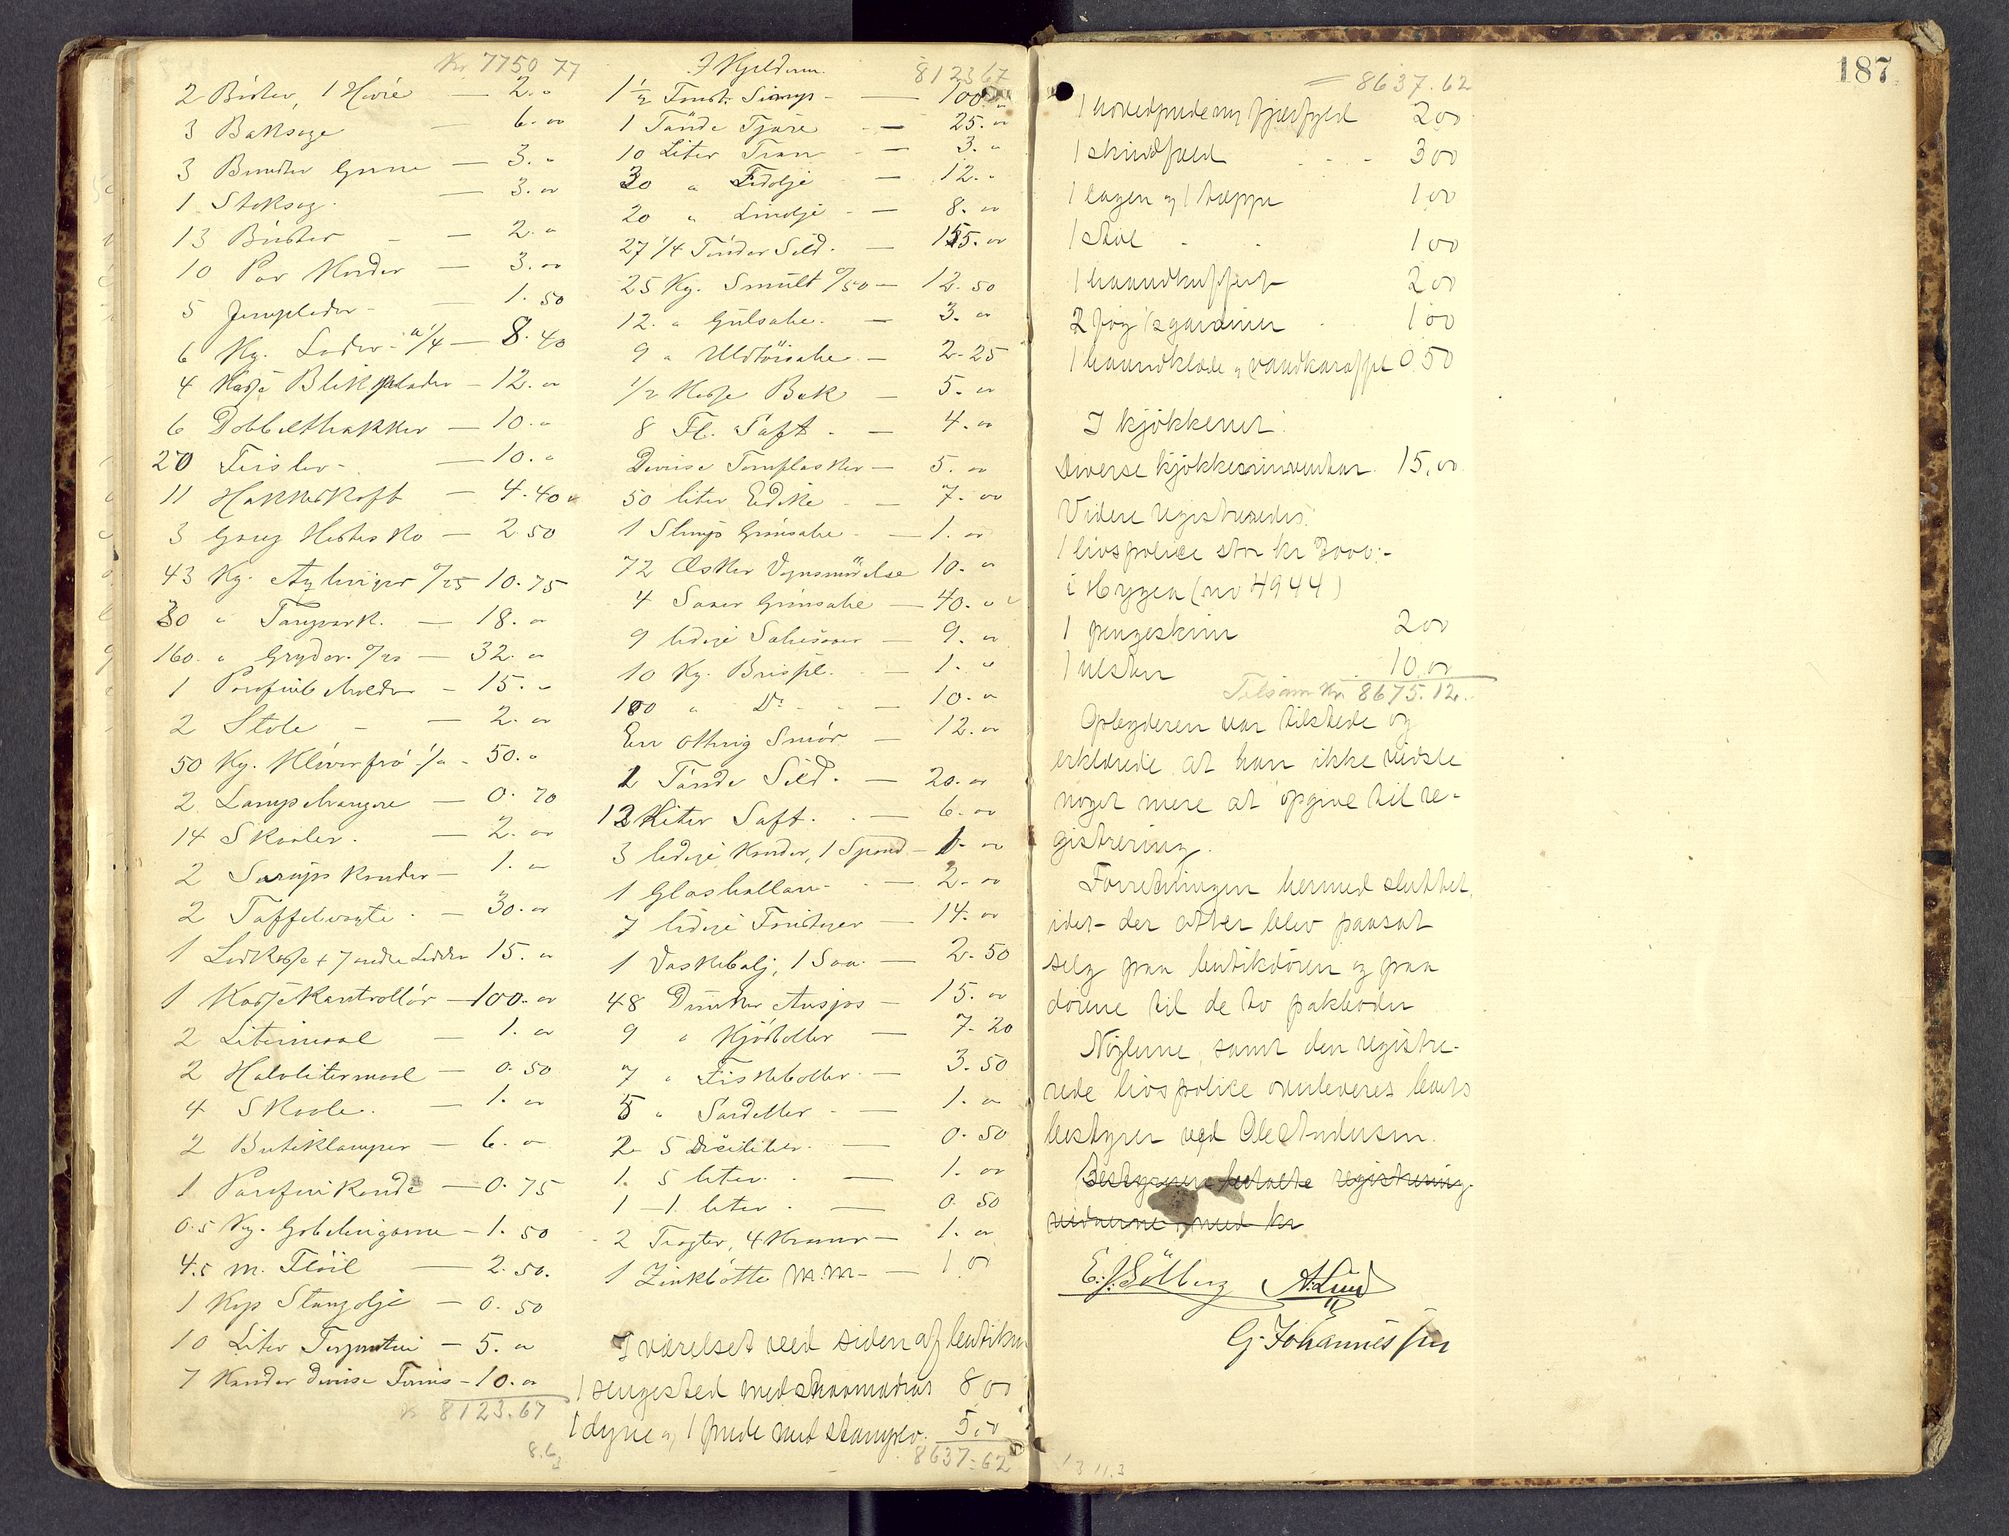 Kr. 7750 77
2 Böster, 1 Hövre — 2. "
3 Baksage — 6. 00
3 Bundter Garne — 3. "
1 Stoksag. — 3. 00
13 Böster — 2. "
10 Par Korder — 3. 00
5 — 1. 50
6 Kg. Loder a 1/4 — 8. 40
4 Kasse Blikplader — 12. 00
6 Dobbelthakker — 10. "
20 — 10. "
11 Hakkeskaft — 4. 40
3 Gang Hestesko — 2 50
43 Kg. 0/25 10. 75
30 " — 18. 00
160. " Gryder. 0/20 — 32. 00
1 — 15. "
2 Stole — 2. 00
50 Kg. Klöverfrö 1/" - 50. "
2 Lampebrangere — 0. 70
14 Skaaler. — 2. 00
2 Sirupskander — 1. 00
2 Taffelvægte — 30. 00
1 + 7 andre 15. 00
1 Kassekontrollör — 100. 00
2 Litermaal — 1. 00
2 Halvlitermaal — 0. 50
4 Skaale. — 1. 00
2 Butiklamper — 6. 00
1 Parafinkande — 0. 75
0.5 Kg. Gobelingarne — 1. 50
4.5 m. Flöil — 2. 50.
1 Kop Stangolje — 0. 50
10 Liter Terpentin — 5. 00
7 Kander diverse Fernis — 10. 00
Kr 8123.67
I Kjelderen. 8123 67
1 1/2 Fust. Sirup — 100. "
1 Tönde Tjære — 25. 00
10 Liter Tran — 3. "
30 " — 12. "
20 " Linolje — 8. 00
27 1/4 Tönder Sild. — 155. 00
25 Kg. Smult 0/50 — 12. 50
12. " Gulsæbe. — 3. 00
9 " Uldtöisæbe. — 2. 25
1/2 Kasse Bek — 5. 00
8 Fl. Saft — 4. 00
Diverse Tomflasker — 5. 00
50 liter Edike — 7. 00
1 Slump Grönsæbe — 1. 00
72 Æsker Vognsmörelse 10. 00
4 Saaer Grönsæbe — 40. "
9 ledige Sæbesaaer — 9. 00
10 Kg. — 1. "
100 " Do — 10. 00
En otting Smör — 12. 00
1 Tönde Sild. — 20. 00
12 Liter Saft. — 6. 00
3 ledige Kander, 1 Spand — 1. 00
1 Glasballon. — 2. 00
7 ledige Fustager — 14. 00
1 Vaskebalj, 1 Saa. — 2. 50
48 Dunker Ansjos — 15. 00
9 " Kjödboller — 7. 20
7 " Fiskeboller — 3. 50
5 " Sardeller — 1. 00
2 5 Desiliter. — 0. 50
1. 5 liter. — 1. 00
1 — 1 liter. — 0. 50
2 Tragter, 4 Kraner — 1. 00
1 Zinkbötte m.m — 1. 00
I værelset ved siden af butiken
1 sengested med straamadras 8 00
1 dyne og 1 pude med 5.00
8637.62
187
= 8637.62
1 hovedpude m fjærfyld 2 00
1 skindfæld 3 00
1 lagen og 1 tæppe 1 00
1 stol 1 00
1 haandkuffert 2 00
2 fag gardiner 1 00
1 haandklæde og vandkaraffel 0.50
I kjökkenet:
Diverse kjökkeninventar. 15,00
Videre registreredes:
1 livspolice stor kr 3000:-
i Hygea (no 4944)
1 pengeskrin 2 00
1 ulster 10.00
Tilsam Kr. 8675.12.
Opbyderen var tilstede og
erklærede at han ikke vidste
noget mere at opgive til re-
gistrering.
Forretningen hermed sluttet,
idet der efter blev paasat
selg paa butikdören og paa
dörene til de to pakboder
Nöglerne samt den registre-
rede livspolice overleveres boets
bestyrer ved Ole Andersen.
Bestyreren betalte registrering-
med kr
E. J. Sölberg A. Lund
G. Johannessen